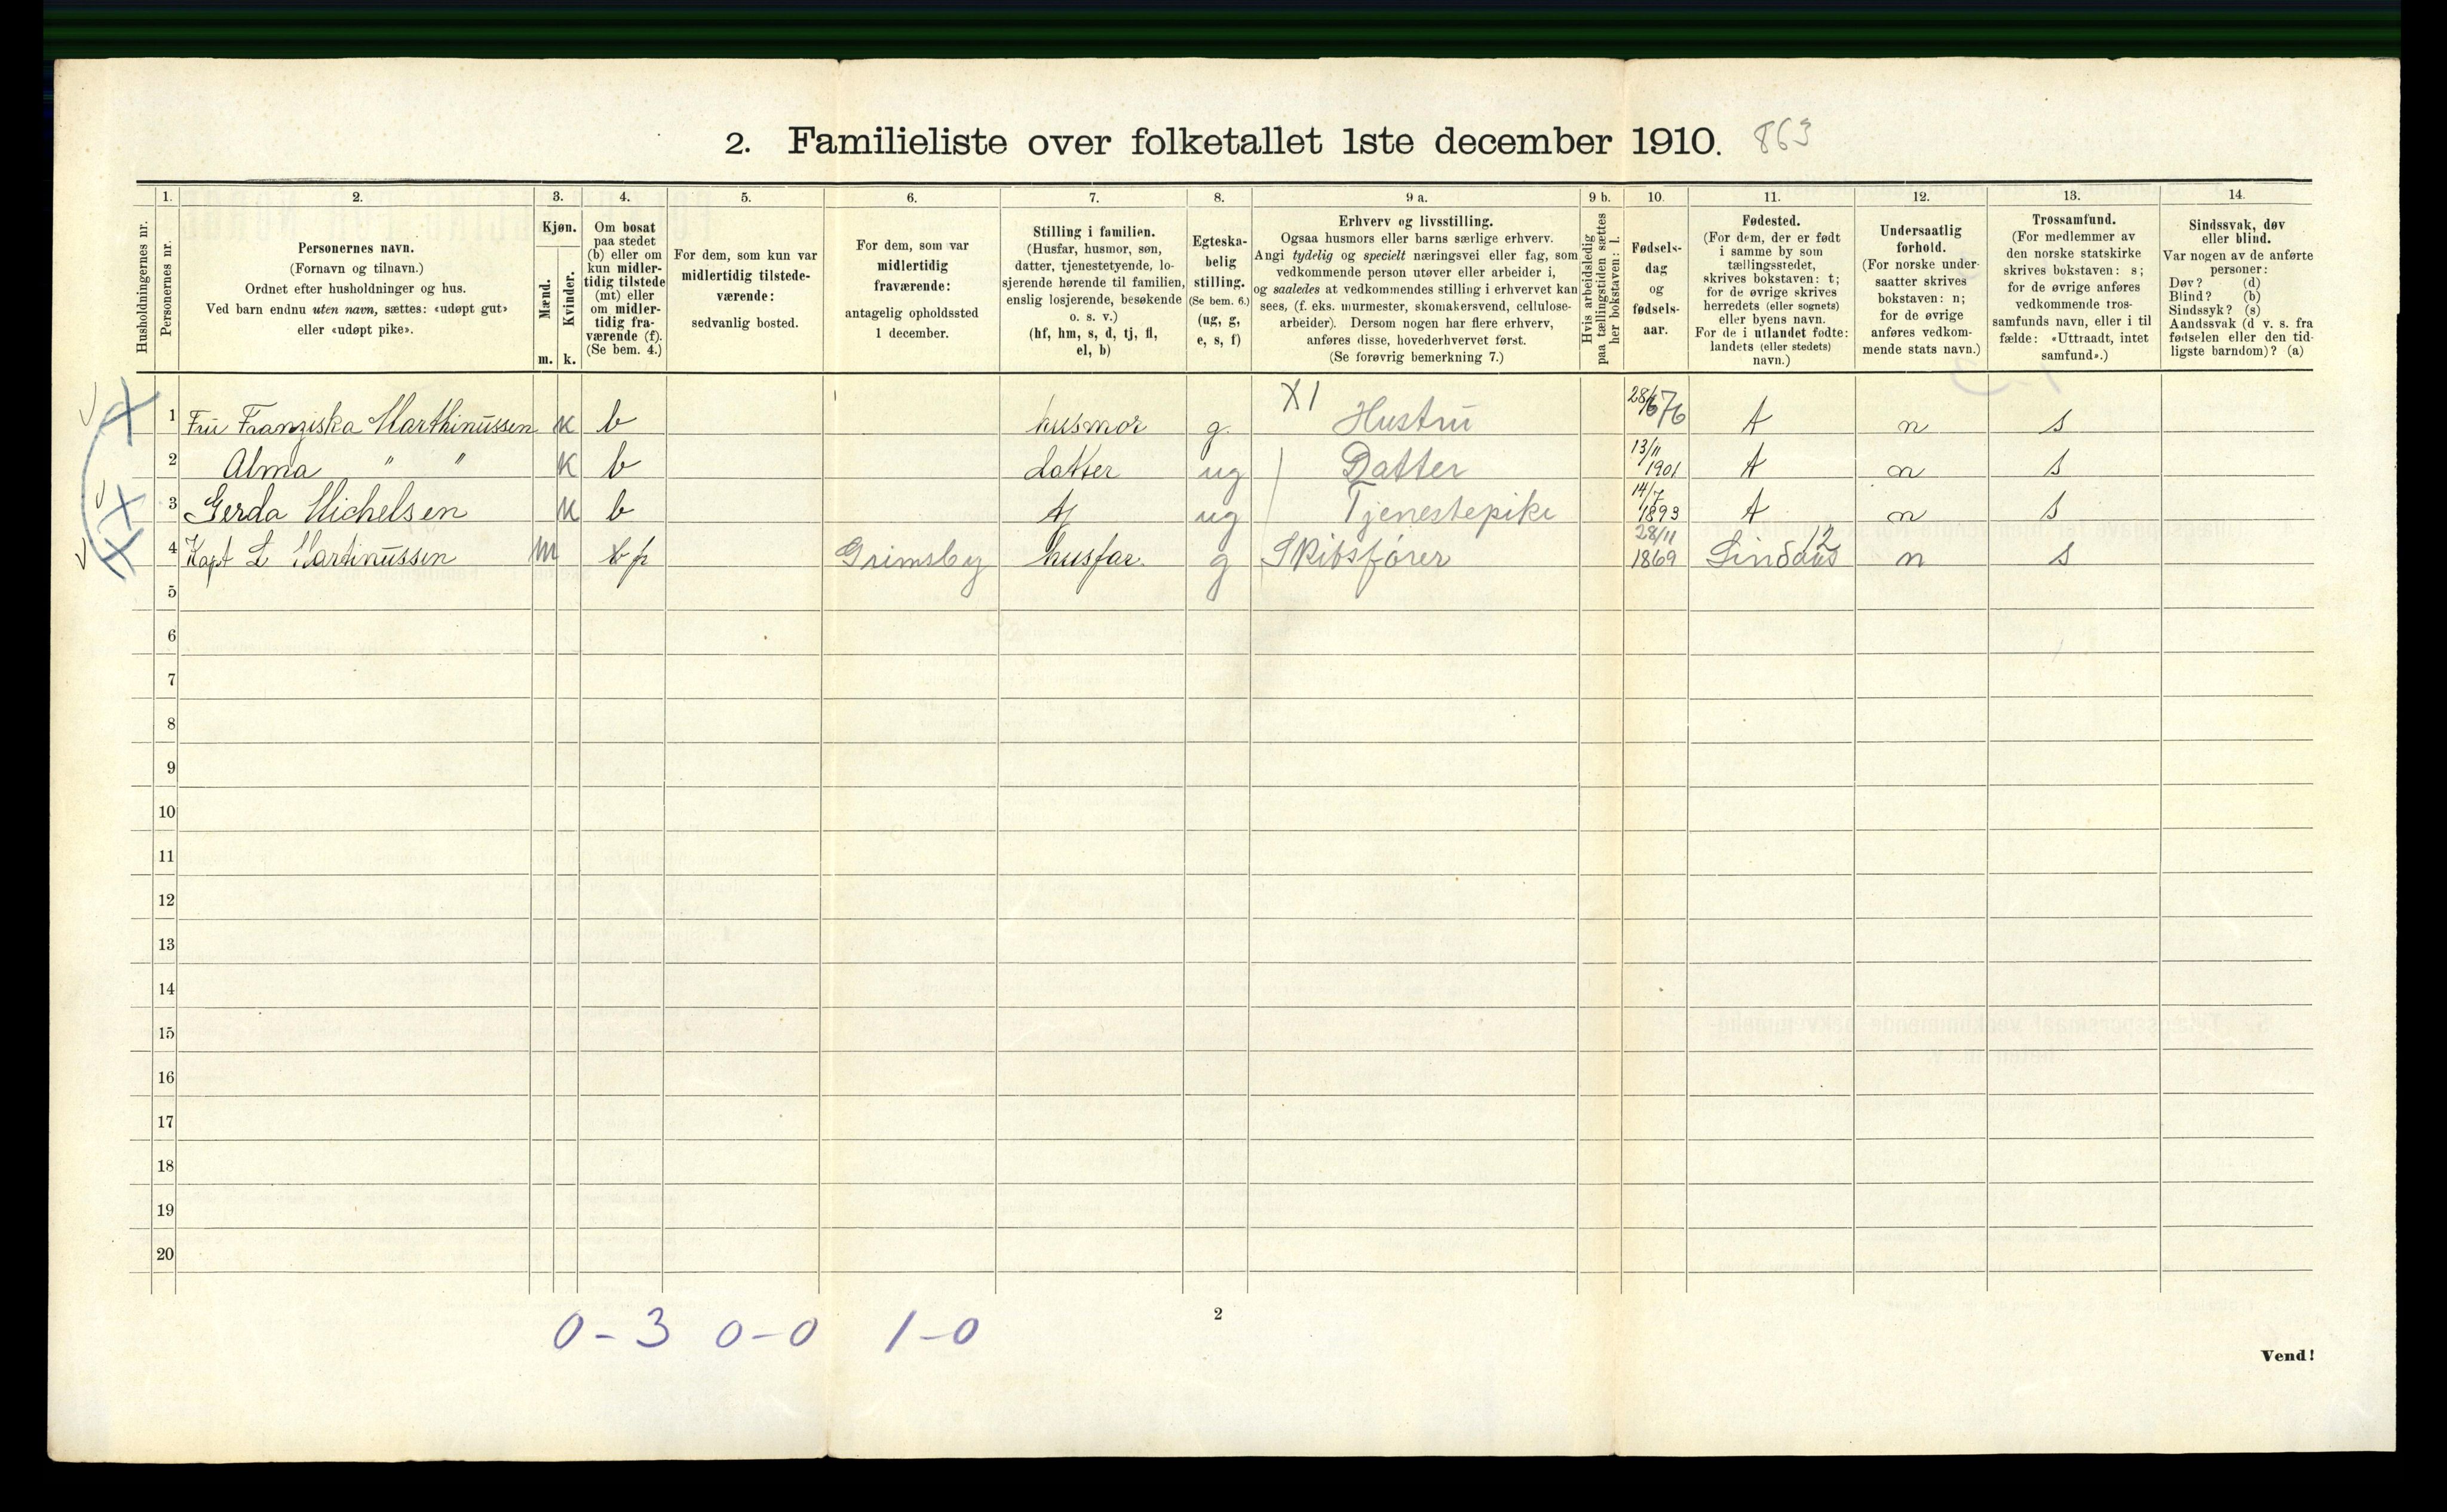 2. Familieliste over folketallet 1ste december 1910. 863
1. 2. 3. 4. 5. 6. 7. 8. 9 a. 9 b. 10. 11. 12. 13. 14.
Husholdningernes nr.
Personernes nr.
Personernes navn.
(Fornavn og tilnavn.)
Ordnet efter husholdninger og hus.
Ved barn endnu uten navn, sættes: «udøpt gut»
eller «udøpt pike».
Kjøn.
Mænd.
Kvinder.
m. k.
Om bosat
paa stedet
(b) eller om
kun midler-
tidig tilstede
(mt) eller
om midler-
tidig fra-
værende (f).
(Se bem. 4.)
For dem, som kun var
midlertidig tilstede-
værende:
sedvanlig bosted.
For dem, som var
midlertidig
fraværende:
antagelig opholdssted
1 december.
Stilling i familien.
(Husfar, husmor, søn,
datter, tjenestetyende, lo-
sjerende hørende til familien,
enslig losjerende, besøkende
o. s. v.)
(hf, hm, s, d, tj, fl,
el, b)
Egteska-
belig
stilling.
(Se bem. 6.)
(ug, g,
e, s, f)
Erhverv og livsstilling.
Ogsaa husmors eller barns særlige erhverv.
Angi tydelig og specielt næringsvei eller fag, som
vedkommende person utøver eller arbeider i,
og saaledes at vedkommendes stilling i erhvervet kan
sees, (f. eks. murmester, skomakersvend, cellulose-
arbeider). Dersom nogen har flere erhverv,
anføres disse, hovederhvervet først.
(Se forøvrig bemerkning 7.)
Hvis arbeidsledig
paa tællingstiden sættes
her bokstaven: l.
Fødsels-
dag
og
fødsels-
aar.
Fødested.
(For dem, der er født
i samme by som
tællingsstedet,
skrives bokstaven: t;
for de øvrige skrives
herredets (eller sognets)
eller byens navn.
For de i utlandet fødte:
landets (eller stedets)
navn.)
Undersaatlig
forhold.
(For norske under-
saatter skrives
bokstaven: n;
for de øvrige
anføres vedkom-
mende stats navn.)
Trossamfund.
(For medlemmer av
den norske statskirke
skrives bokstaven: s;
for de øvrige anføres
vedkommende tros-
samfunds navn, eller i til
fælde: «Uttraadt, intet
samfund».)
Sindssvak, døv
eller blind.
Var nogen av de anførte
personer:
Døv? (d)
Blind? (b)
Sindssyk? (s)
Aandssvak (d v. s. fra
fødselen eller den tid-
ligste barndom)? (a)
X1
1 Fru Franziska Marthinussen k b husmor g. Hustru 76 t n s
2 Alma " " k b datter ug Datter 13/11 1901 t n s
3 Gerda Michelsen k b tj ug Tjenestepike 14/7 1893 t n s
4 Kapt L Martinussen m b f Grimsby husfar. g Skibsfører 28/11 1869 Lindaas 12 n s
5
6
7
8
9
10
11
12
13
14
15
16
17
18
19
20
0-3 0-0 1-0
2
Vend!